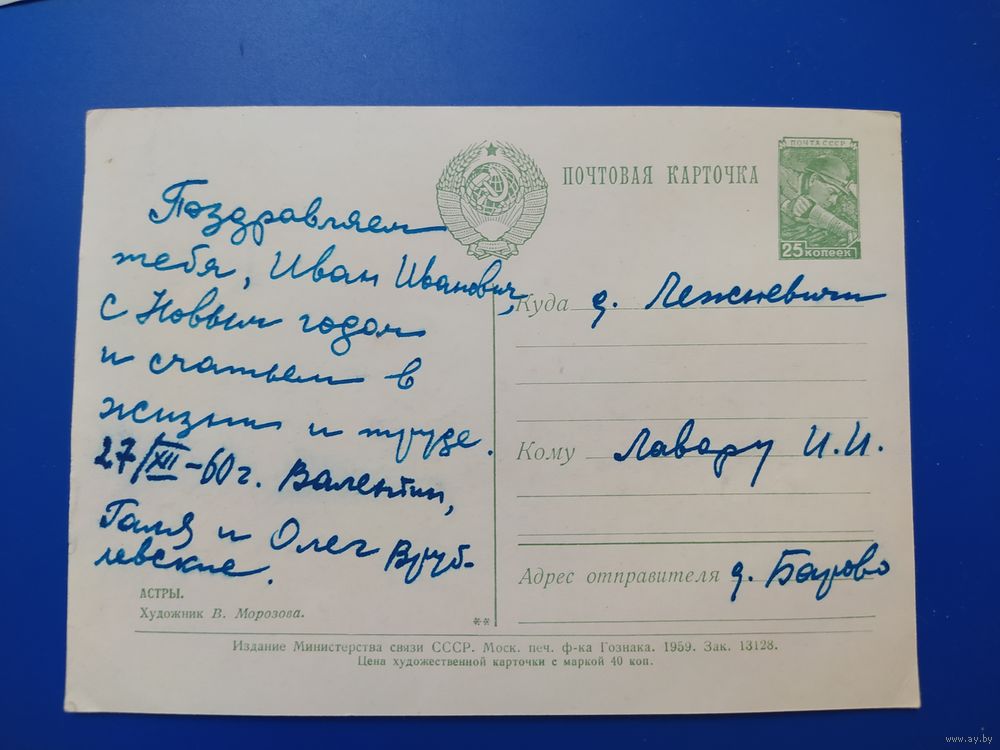 ПОЧТОВАЯ КАРТОЧКА
ПОЧТА СССР
25 копеек
Поздравляем
тебя, Иван Иванович,
с Новым годом
и счастьем в
жизни и труде.
27/XII-60 г. Валентин,
Галя и Олег Вруб-
левские.
Куда д. Лежневичи
Кому Лавару И.И.
Адрес отправителя д.
АСТРЫ.
Художник В. Морозова.
**
Издание Министерства связи СССР. Моск. печ. ф-ка Гознака. 1959. Зак. 13128.
Цена художественной карточки с маркой 40 коп.
www.ay.by